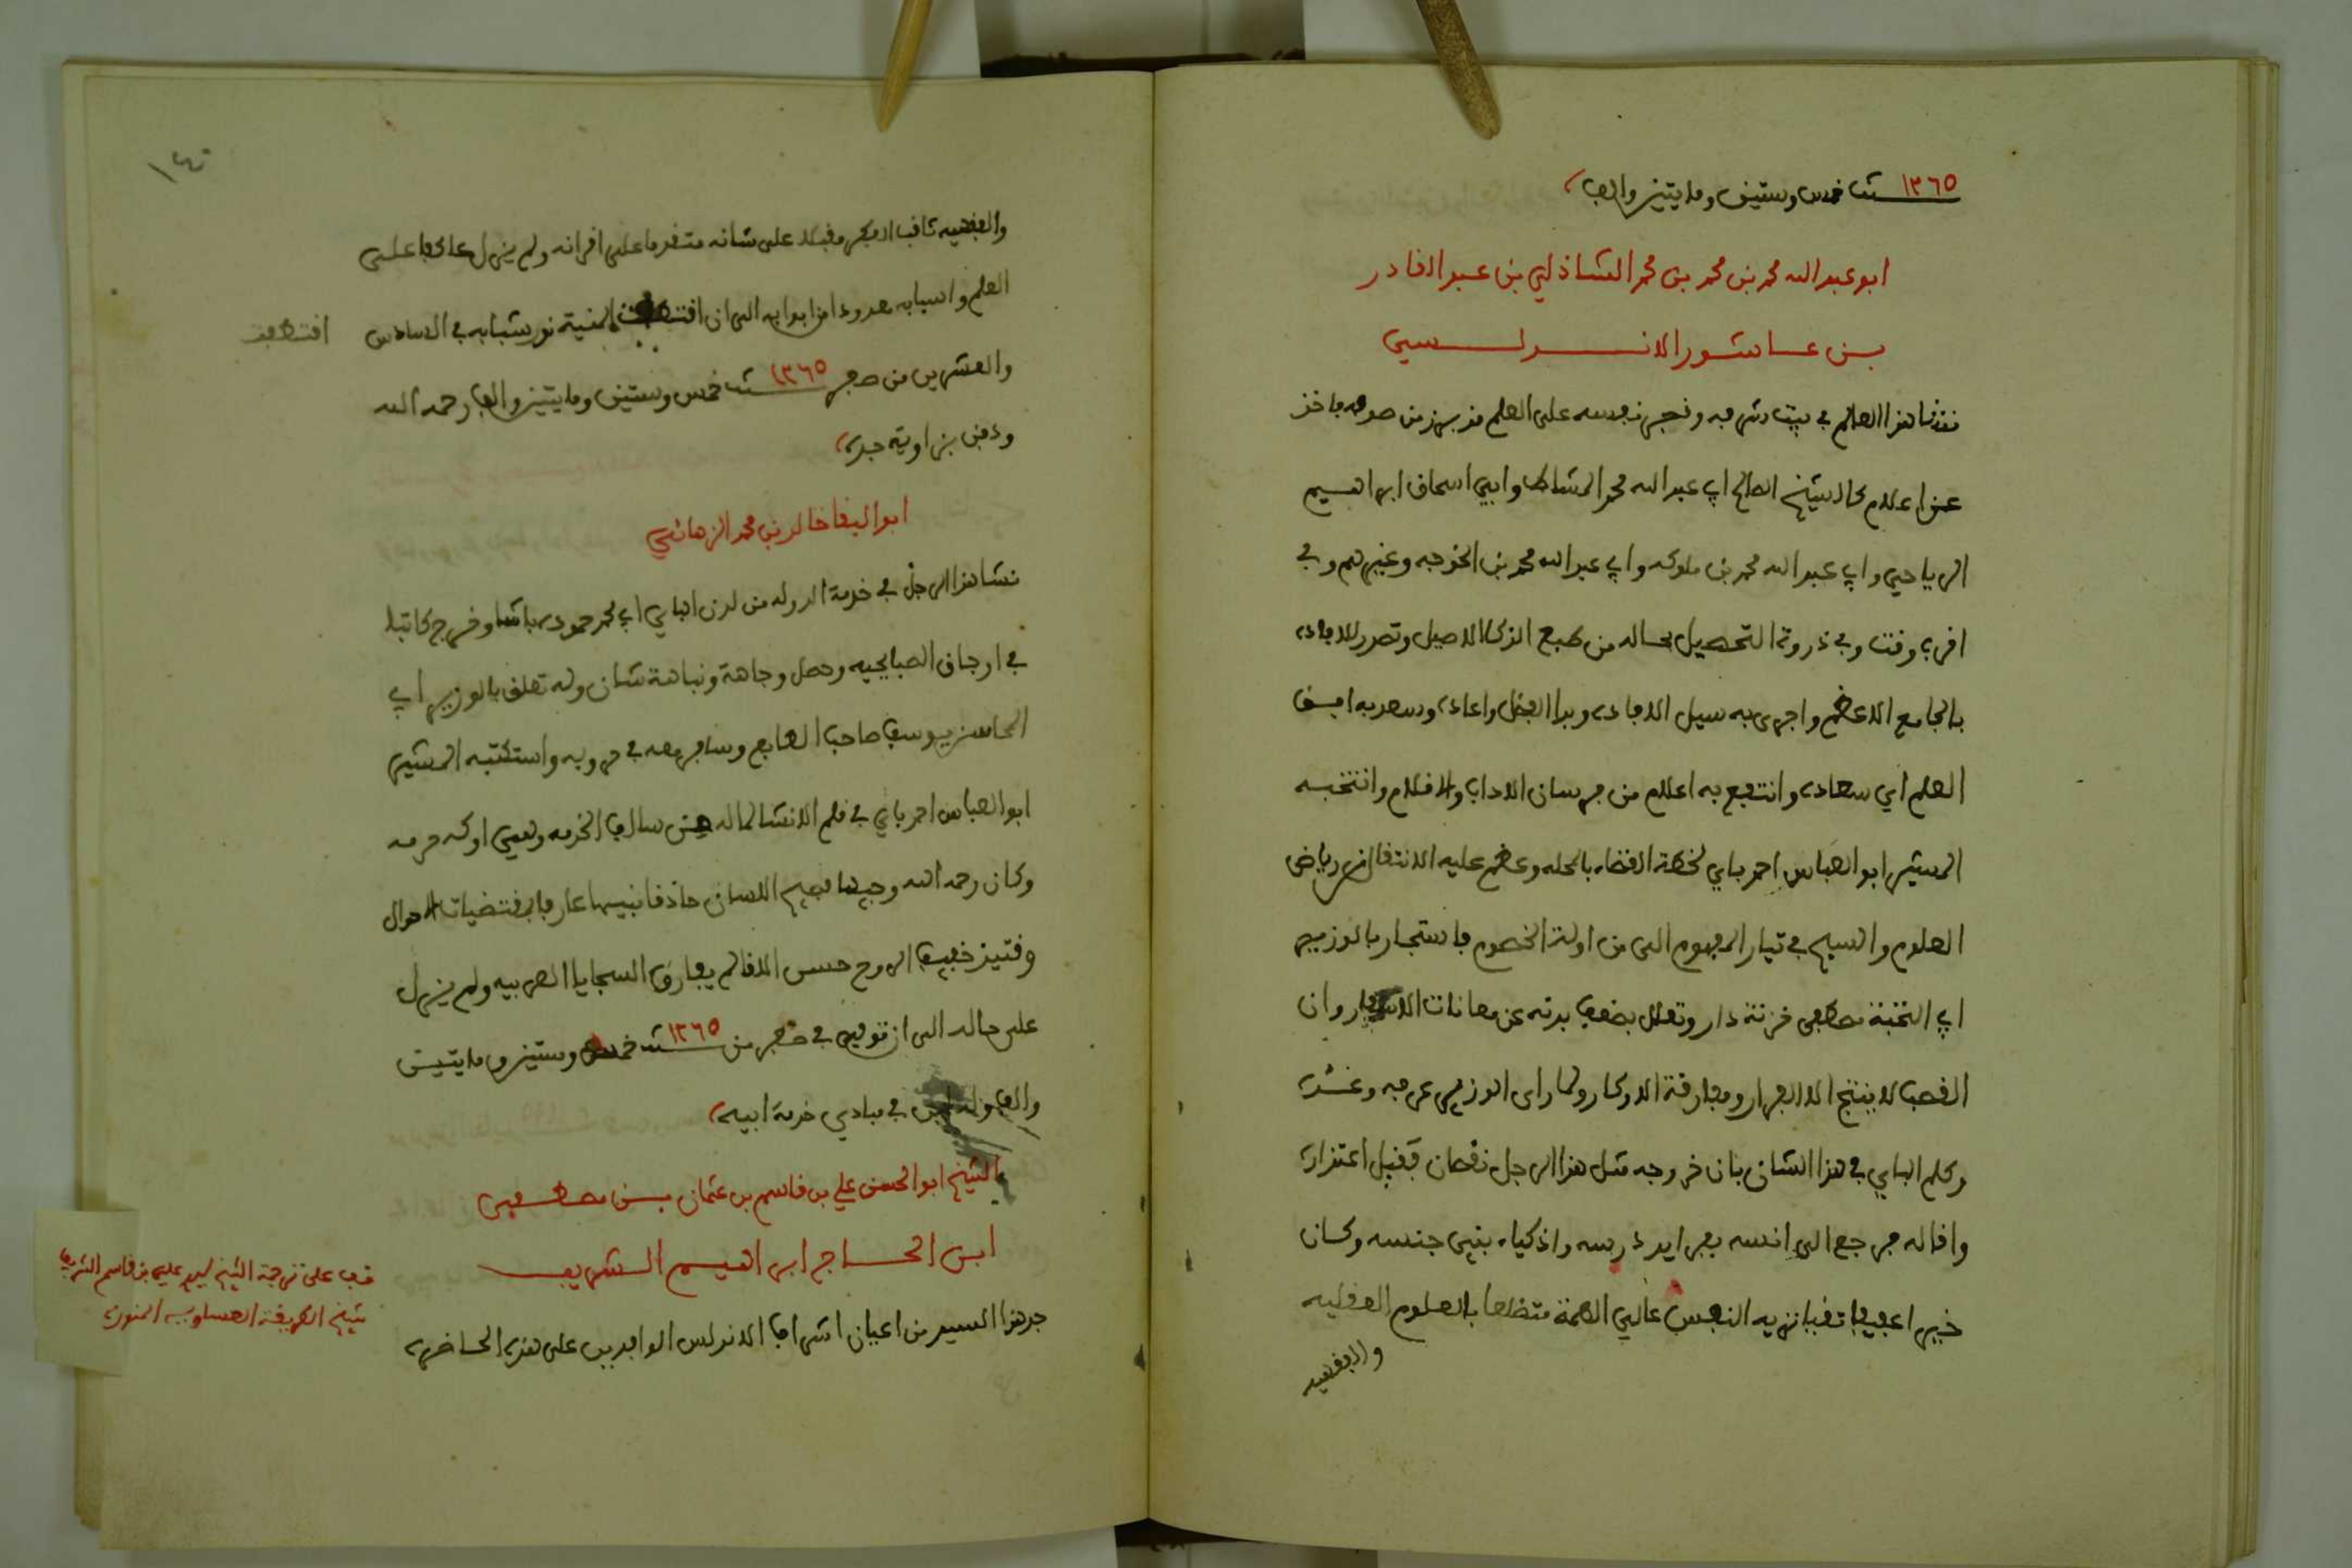 ١٢٦٥ سنة خمس وستين ومايتين والف
ابو عبد الله محمد بن محمد بن محمد الشاذلي بن عبد القادر
بن عاشور الاندلسي
نشا هذا العالم في بيت شرفه وفجر نفسه على العلم من صفره فاخذ
عن اعلام كالشيخ الصالح ابي عبد الله محمد المشاط وابي اسحاق ابراهيم
الرياحي وابي عبد الله محمد بن ملوكه وابي عبد الله محمد بن الخوجه وغيرهم وفي
اقرب وقت رقي ذروة التحصيل بحاله من طبع الذكا الاصيل وتصدر للافاده
بالجامع الاعظم واجرى به سيل الافاده وبدا الفضل واعاده وسعد به افق
العلم اي سعاده وانتفع به اعلام من فرسان الاداب والاقلام وانتخبه
المشير ابو العباس احمد باي لخطة القضاء بالمحله وعظم عليه الانتقال من رياض
العلوم والسبح في تيار المفهوم الى من اولة الخصوم فاستجار بالوزير
ابي النخبة مصطفى خزنة دار وتعلل بضعف بدنه عن معانات الاسفار وان
الغصب لا ينتج الا الفرار ومفارقة الاوكار ولما راى الوزير عرفه وعذره
وكلم الباي في هذا الشان بان خروجه مثل هذا الرجل نقصان فقبل اعتذاره
واقاله فرجع الى انسه بفرايد درسه واذكياء بني جنسه وكان
خيرا عفيفا تقيا نزيه النفس عالي الهمة متضلعا بالعلوم العقليه
والفقهيه
والفقهيه ثاقب الفكر مقبلا على شانه متقدما على اقرانه ولم يزل عاكفا على
العلم واسبابه معدودا من ابوابه الى ان اقتطفت المنية نور شبابه في السادس
اقتطفت
والعشرين من صفر ١٢٦٥ سنة خمس وستين ومايتين والف رحمه الله
ودفن بزاوية جده
ابو البقا خالد بن محمد الزهاني
نشا هذا الرجل في خدمة الدوله من لدن الباي ابي محمد حموده باشا وخرج كاتبا
في اوجاق الصبايحيه وحصل وجاهة ونباهة شان وله تعلق بالوزير ابي
المحاسن يوسف صاحب الطابع وسافر معه في حروبه واستكتبه المشير
ابو العباس احمد باي في قلم الانشا لما له من سالف الخدمه وهي اوكد حرمه
وكان رحمه الله وجيها فصيح اللسان حاذقا نبيها عارفا بمقتضيات الاحوال
وقتيذ خفيف الروح حسن اللقا لم يفارق السجايا العربيه ولم يزل
على حاله الى ان توفي في صفر من ١٢٦٥ سنة خمس وستين ومايتين
والف في مبادي خدمة ابيه
الشيخ ابو الحسن علي بن قاسم بن عثمان بن مصطفى
ابن الحاج ابراهيم الشريف
جد هذا السيد من اعيان اشراف الاندلس الوافدين على هذه الحاضره
قف على ترجمة الشيخ سيدي علي بن قاسم الشريف
شيخ الطريقة العيساوية المنوره